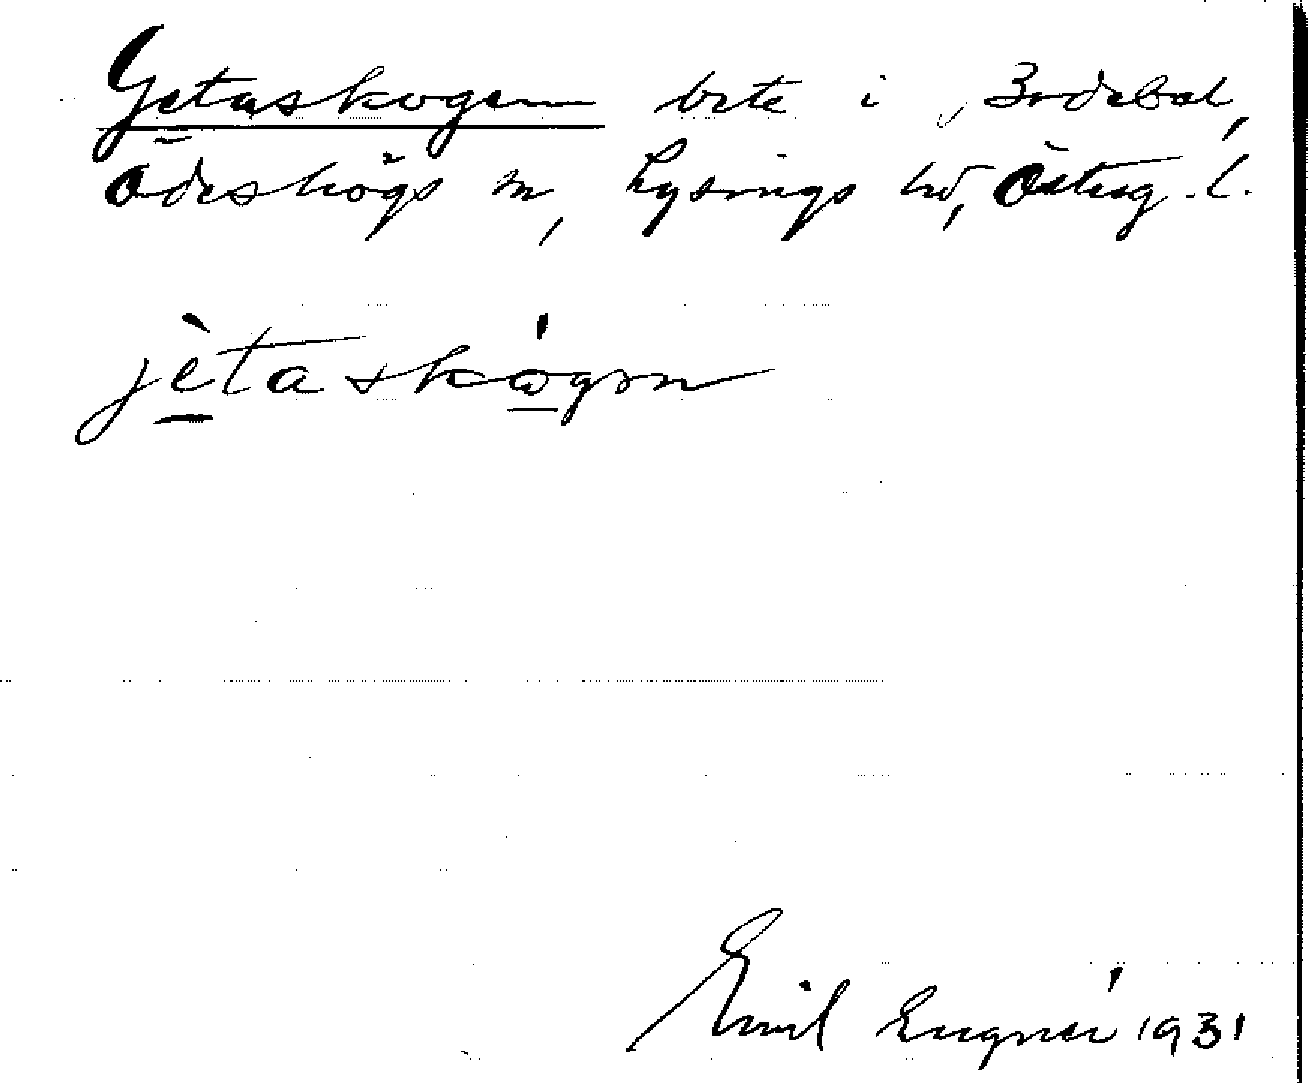 Getaskogen bete i Bodebol,
Ödeshögs sn, Lysings hd, Östug. l.
jètaskógən
Emil Engnér 1931